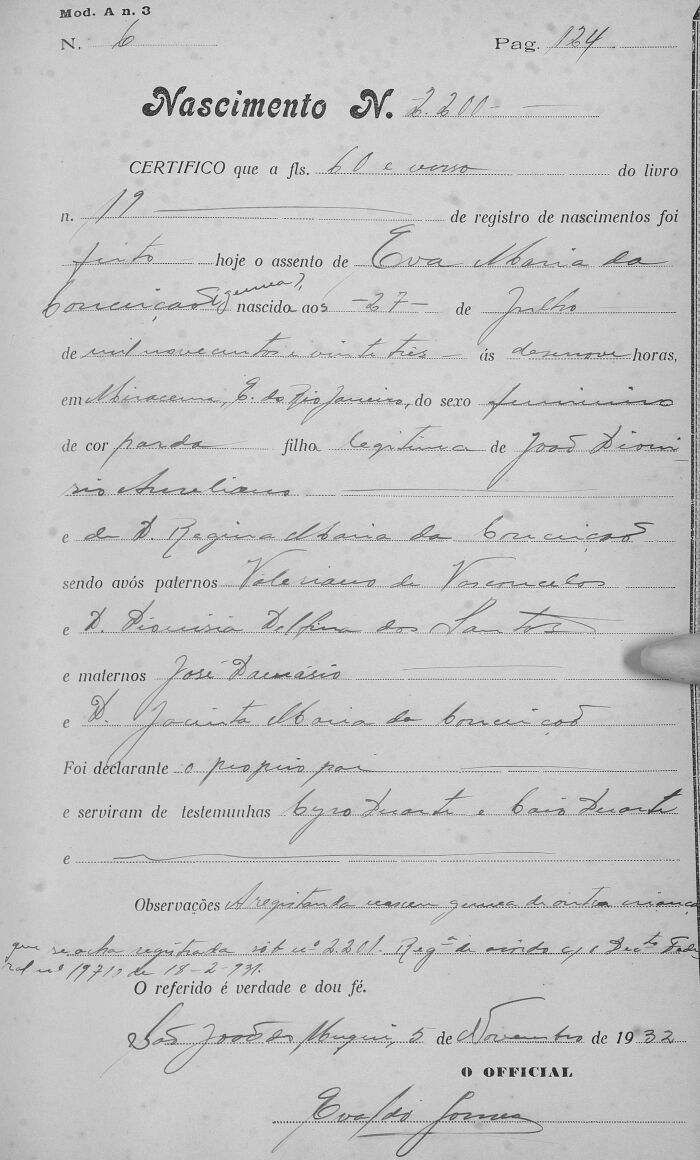 Mod. A n. 3
N. 6 Pag. 124
Nascimento N. 2.200
CERTIFICO que a fls. 60 e verso do livro
n. 19 de registro de nascimentos foi
feito hoje o assento de Eva Maria da
Conceição (gemea), nascida aos -27- de Julho
de mil novecentos e vinte tres ás desenove horas,
em Miracema, E. do Rio Janeiro, do sexo feminino
de cor parda filha legitima de João Dioni-
sio Aureliano
e de D. Regina Maria da Conceição
sendo avós paternos Valeriano de Vasconcelos
e D. Dionisia Delfina dos Santos
e maternos José Damásio
e D. Jacinta Maria da Conceição
Foi declarante o proprio pai
e serviram de testemunhas Cyro Duarte e Caio Duarte
e
Observações A registanda nasceu gemea de outra criança
que se acha registrada sob nº 2.201. Regª de acordo c/ o Decto Fede-
ral nº 19710 de 18-2-931.
O referido é verdade e dou fé.
São João do Muqui, 5 de Novembro de 1932
O OFFICIAL
Evaldo Gomes